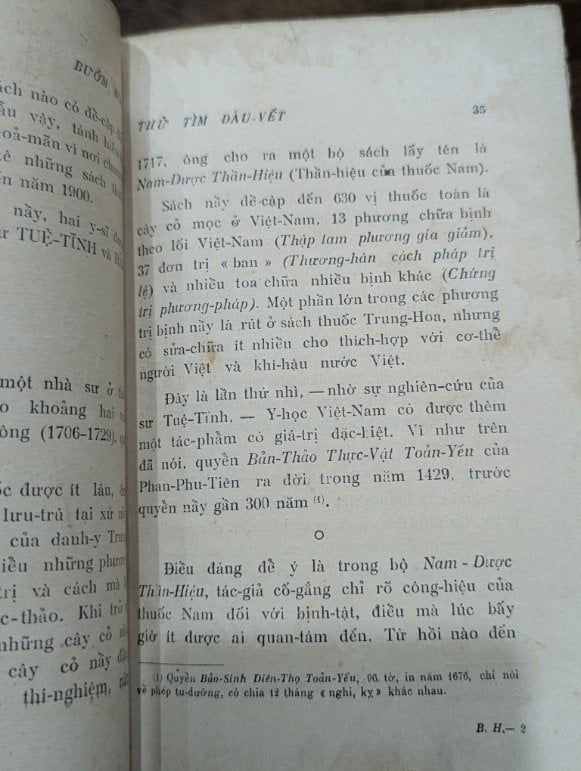 BƯỚM
ách nào có đề-cập
ẫu vậy, tánh
oả-mãn vì nơi
ẻ những sách
ến năm 1900.
nầy, hai y-sĩ
ư TUỆ-TĨNH và
một nhà sư ở
o khoảng hai
ông (1706-1729),
ốc được ít lâu,
lưu-trú tại xứ
của danh-y
iều những phương
trị và cách mà
c-thảo. Khi trở
những cây cỏ
cây cỏ nầy
thí-nghiệm,
THỬ TÌM DẤU-VẾT 35
1717, ông cho ra một bộ sách lấy tên là
Nam-Dược Thần-Hiệu (Thần-hiệu của thuốc Nam).
Sách nầy đề-cập đến 630 vị thuốc toàn là
cây cỏ mọc ở Việt-Nam, 13 phương chữa bịnh
theo lối Việt-Nam (Thập tam phương gia giảm),
37 đơn trị « ban » (Thương-hàn cách pháp trị
lệ) và nhiều toa chữa nhiều bịnh khác (Chứng
trị phương-pháp). Một phần lớn trong các phương
trị bịnh nầy là rút ở sách thuốc Trung-Hoa, nhưng
có sửa-chữa ít nhiều cho thích-hợp với cơ-thể
người Việt và khí-hậu nước Việt.
Đây là lần thứ nhì, — nhờ sự nghiên-cứu của
sư Tuệ-Tĩnh, — Y-học Việt-Nam có được thêm
một tác-phẩm có giá-trị đặc-biệt. Vì như trên
đã nói, quyển Bản-Thảo Thực-Vật Toản-Yếu của
Phan-Phu-Tiên ra đời trong năm 1429, trước
quyển nầy gần 300 năm (1).
O
Điều đáng để ý là trong bộ Nam-Dược
Thần-Hiệu, tác-giả cố-gắng chỉ rõ công-hiệu của
thuốc Nam đối với bịnh-tật, điều mà lúc bấy
giờ ít được ai quan-tâm đến. Từ hồi nào đến
(1) Quyển Bảo-Sinh Diên-Thọ Toản-Yếu, 96 tờ, in năm 1676, chỉ nói
về phép tu-dưỡng, có chia 12 tháng « nghi, kỵ » khác nhau.
B. H,— 2